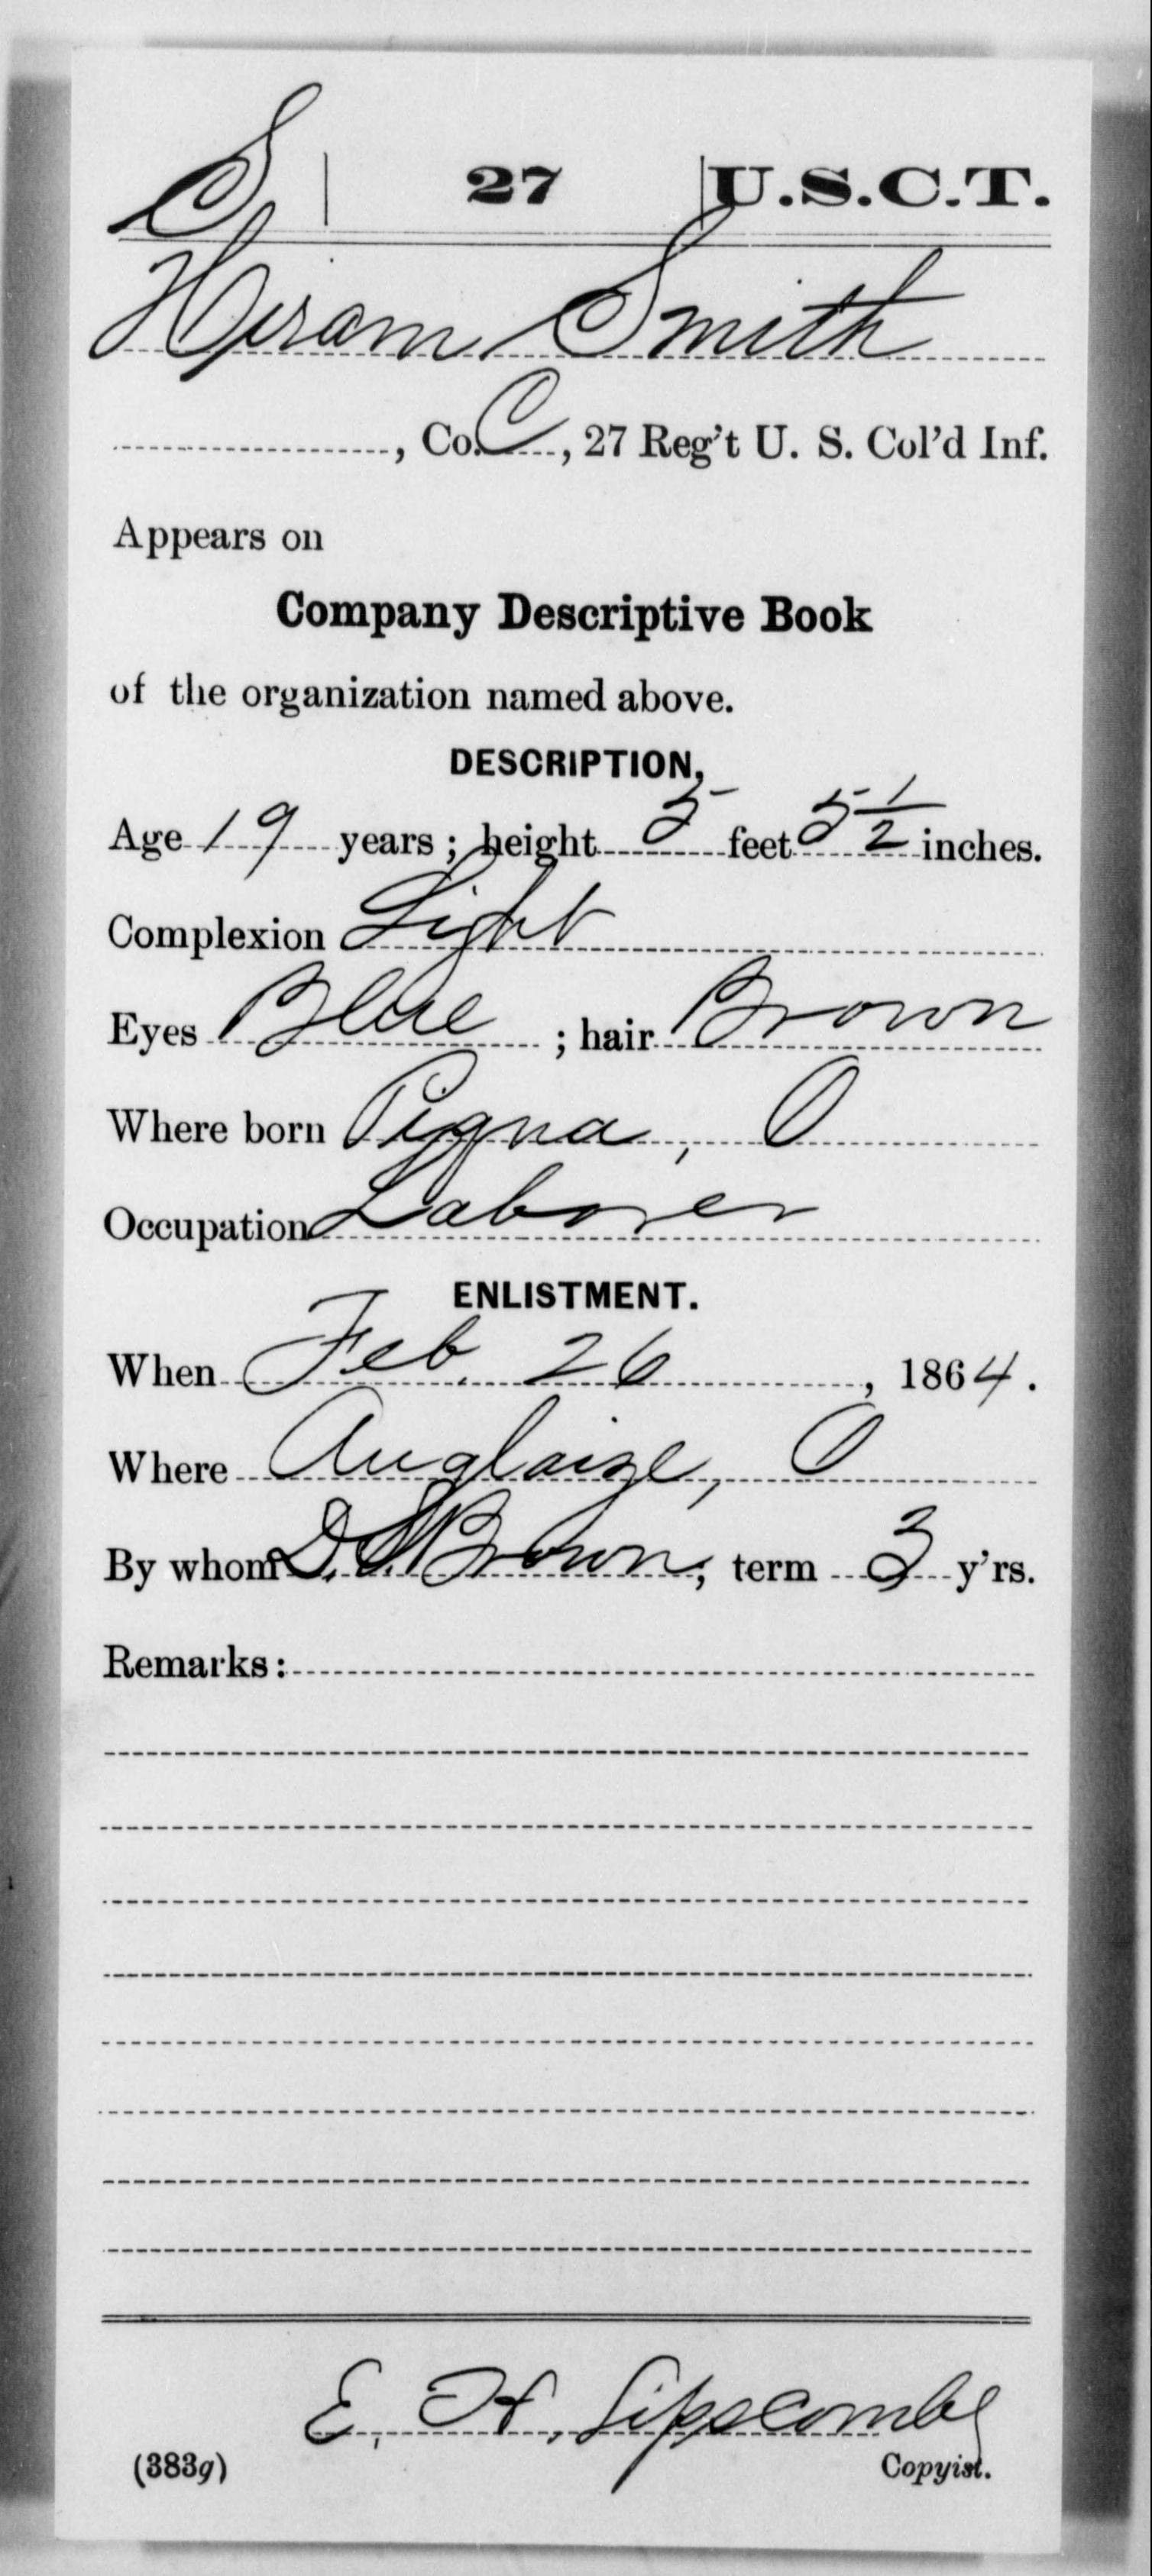 S | 27 | U.S.C.T.
Hiram Smith
, Co. C, 27 Reg't U. S. Col'd Inf.
Appears on
Company Descriptive Book
of the organization named above.
DESCRIPTION.
Age 19 years; height 5 feet 5 1/2 inches.
Complexion Light
Eyes Blue; hair Brown
Where born Piqua, O
Occupation Laborer
ENLISTMENT.
When Feb. 26, 1864.
Where Auglaize, O
By whom D. S. Brown; term 3 y'rs.
Remarks:
E. H. Lipscombe
(383g) Copyist.